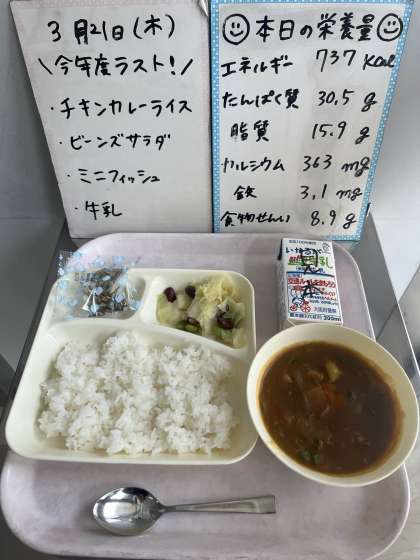 3月21日(木)
\今年度ラスト!/
・チキンカレーライス
・ビーンズサラダ
・ミニフィッシュ
・牛乳
本日の栄養量
エネルギー 737 kcal
たんぱく質 30.5 g
脂質 15.9 g
カルシウム 363 mg
鉄 3.1 mg
食物せんい 8.9 g
大阪府警察